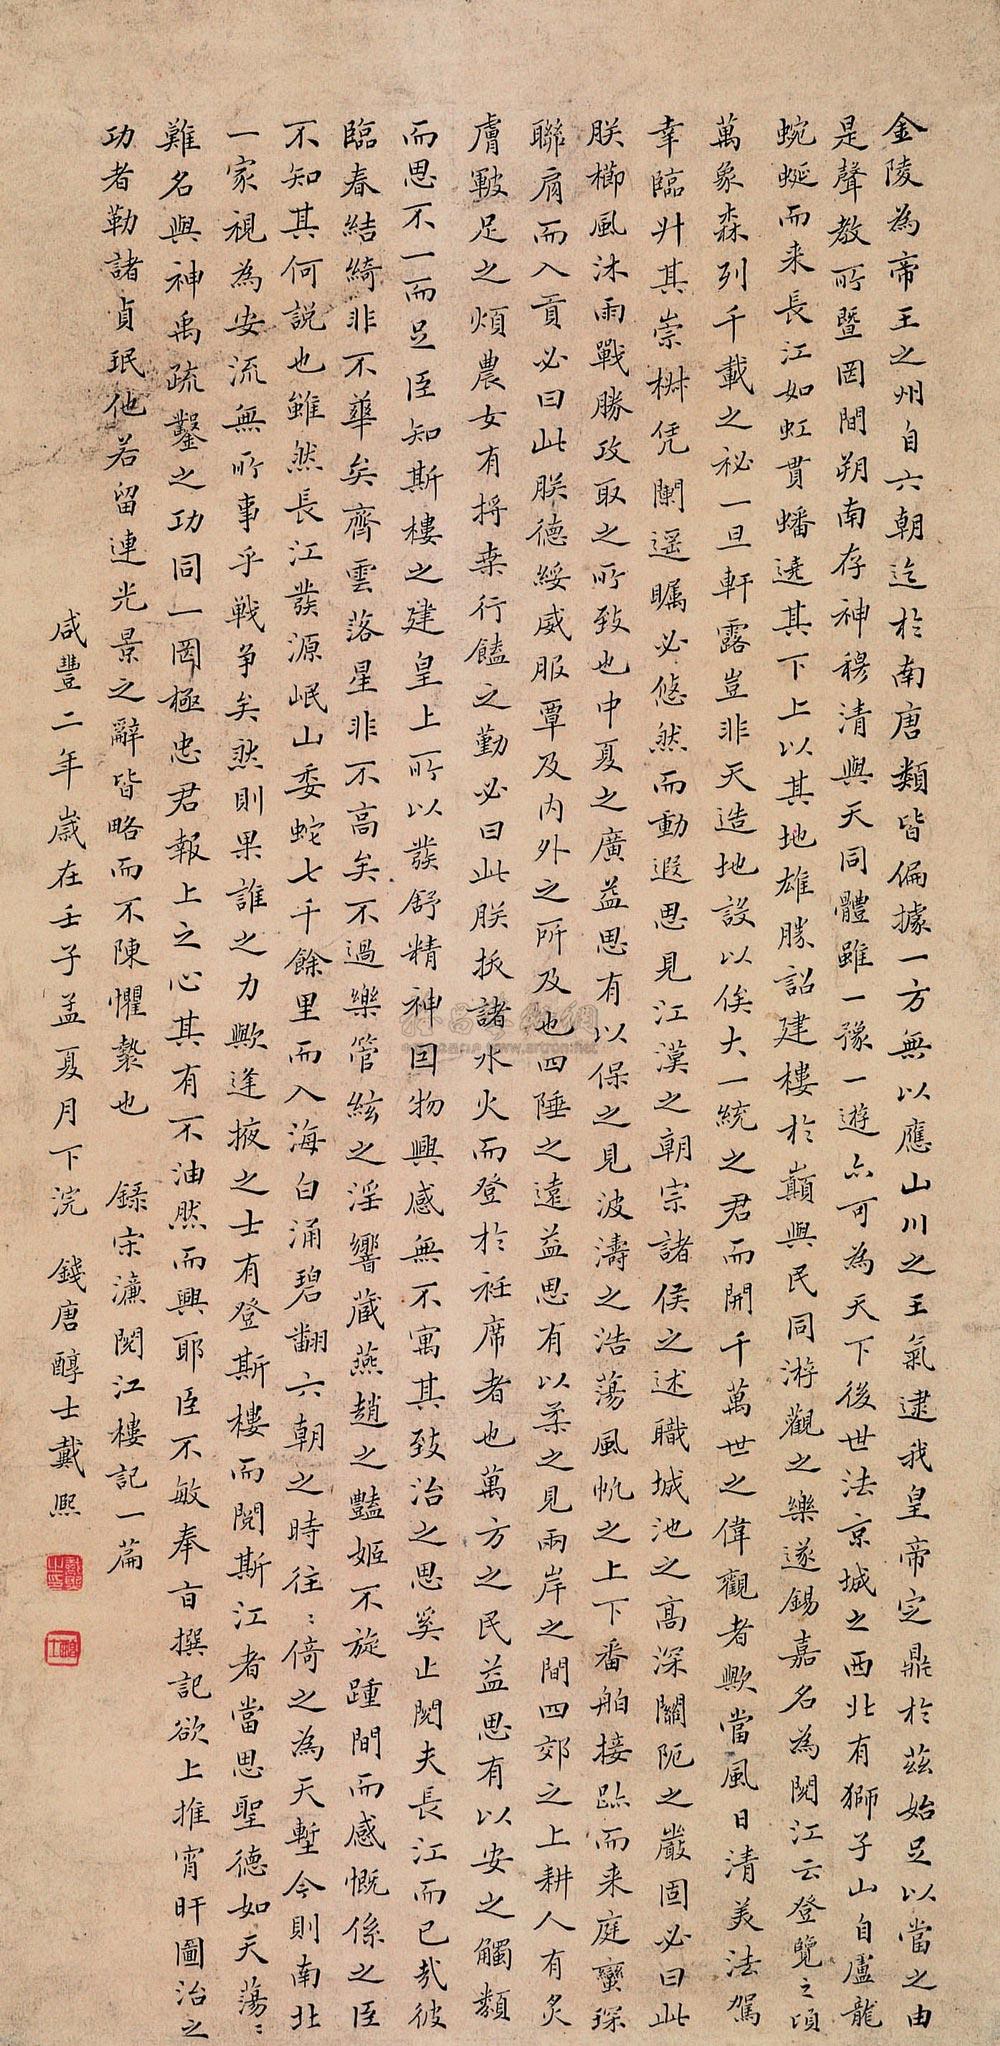 金陵為帝王之州自六朝迄於南唐類皆偏據一方無以應山川之王氣逮我皇帝定鼎於茲始足以當之由
是聲教所暨罔間朔南存神穆清與天同體雖一豫一遊亦可為天下後世法京城之西北有獅子山自盧龍
蜿蜒而来長江如虹貫蟠遶其下上以其地雄勝詔建樓於巔與民同游觀之樂遂錫嘉名為閱江云登覽之頃
萬象森列千載之祕一旦軒露豈非天造地設以俟大一統之君而開千萬世之偉觀者歟當風日清美法駕
幸臨升其崇椒凭闌遥矚必悠然而動遐思見江漢之朝宗諸侯之述職城池之高深關阨之嚴固必曰此
朕櫛風沐雨戰勝攻取之所致也中夏之廣益思有以保之見波濤之浩蕩風帆之上下番舶接跡而来庭蠻琛
聯肩而入貢必曰此朕德綏威服覃及內外之所及也四陲之遠益思有以柔之見兩岸之間四郊之上耕人有炙
膚皸足之煩農女有捋桑行饁之勤必曰此朕拔諸水火而登於衽席者也萬方之民益思有以安之觸類
而思不一而足臣知斯樓之建皇上所以發舒精神因物興感無不寓其致治之思奚止閱夫長江而已哉彼
臨春結綺非不華矣齊雲落星非不高矣不過樂管絃之淫響藏燕趙之豔姬不旋踵間而感慨係之臣
不知其何説也雖然長江發源岷山委蛇七千餘里而入海白涌碧翻六朝之時往﹕倚之為天塹今則南北
一家視為安流無所事乎戰争矣然則果誰之力歟逢掖之士有登斯樓而閱斯江者當思聖德如天蕩﹕
難名與神禹疏鑿之功同一罔極忠君報上之心其有不油然而興耶臣不敏奉旨撰記欲上推宵旰圖治之
功者勒諸貞珉他若留連光景之辭皆略而不陳懼褻也 錄宋濂閱江樓記一篇
咸豐二年歲在壬子孟夏月下浣 錢唐醇士戴熙